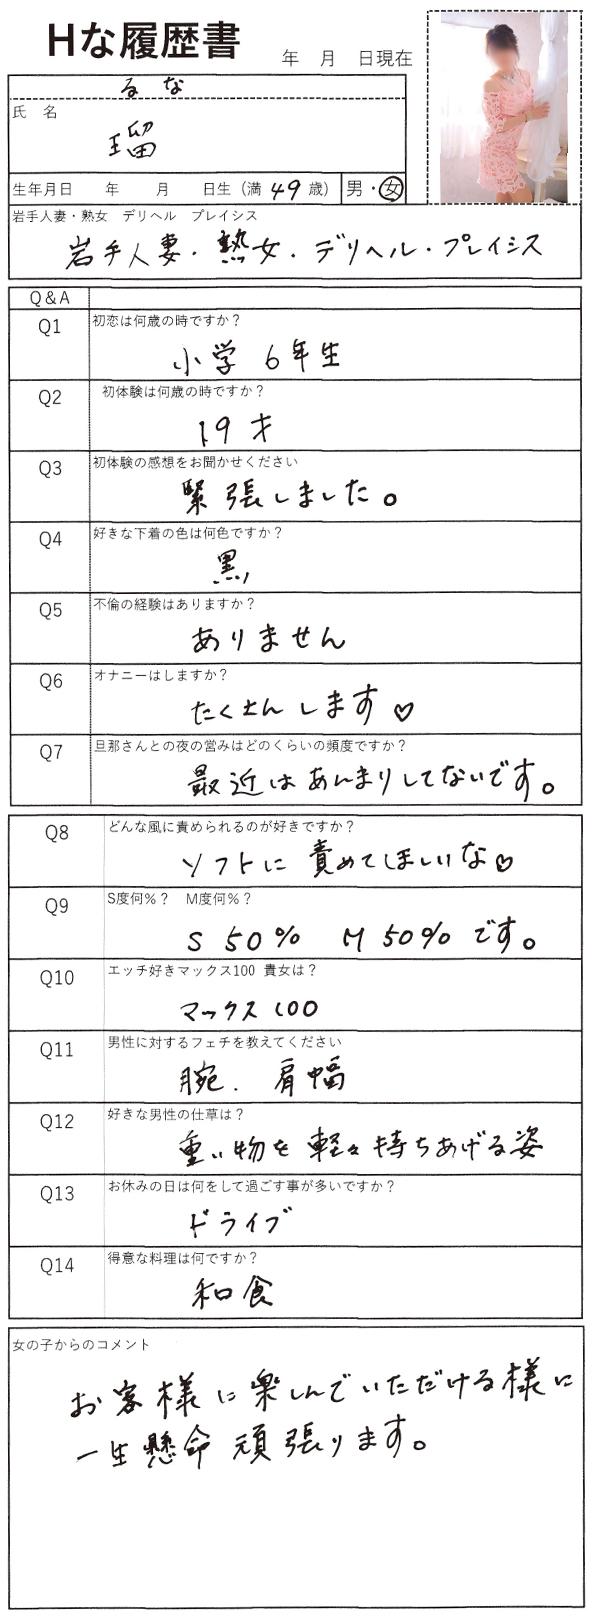 Hな履歴書
年　月　日現在
るな
氏　名
瑠
生年月日　年　月　日生（満 49 歳）　男・女
岩手人妻・熟女　デリヘル　プレイシス
岩手人妻・熟女・デリヘル・プレイシス
Q＆A
Q1 初恋は何歳の時ですか？
小学6年生
Q2 初体験は何歳の時ですか？
19才
Q3 初体験の感想をお聞かせください
緊張しました。
Q4 好きな下着の色は何色ですか？
黒
Q5 不倫の経験はありますか？
ありません
Q6 オナニーはしますか？
たくさんします♡
Q7 旦那さんとの夜の営みはどのくらいの頻度ですか？
最近はあんまりしてないです。
Q8 どんな風に責められるのが好きですか？
ソフトに責めてほしいな♡
Q9 S度何%？　M度何%？
S 50%　M 50%です。
Q10 エッチ好きマックス100 貴女は？
マックス100
Q11 男性に対するフェチを教えてください
腕、肩幅
Q12 好きな男性の仕草は？
重い物を軽々持ちあげる姿
Q13 お休みの日は何をして過ごす事が多いですか？
ドライブ
Q14 得意な料理は何ですか？
和食
女の子からのコメント
お客様に楽しんでいただける様に
一生懸命頑張ります。